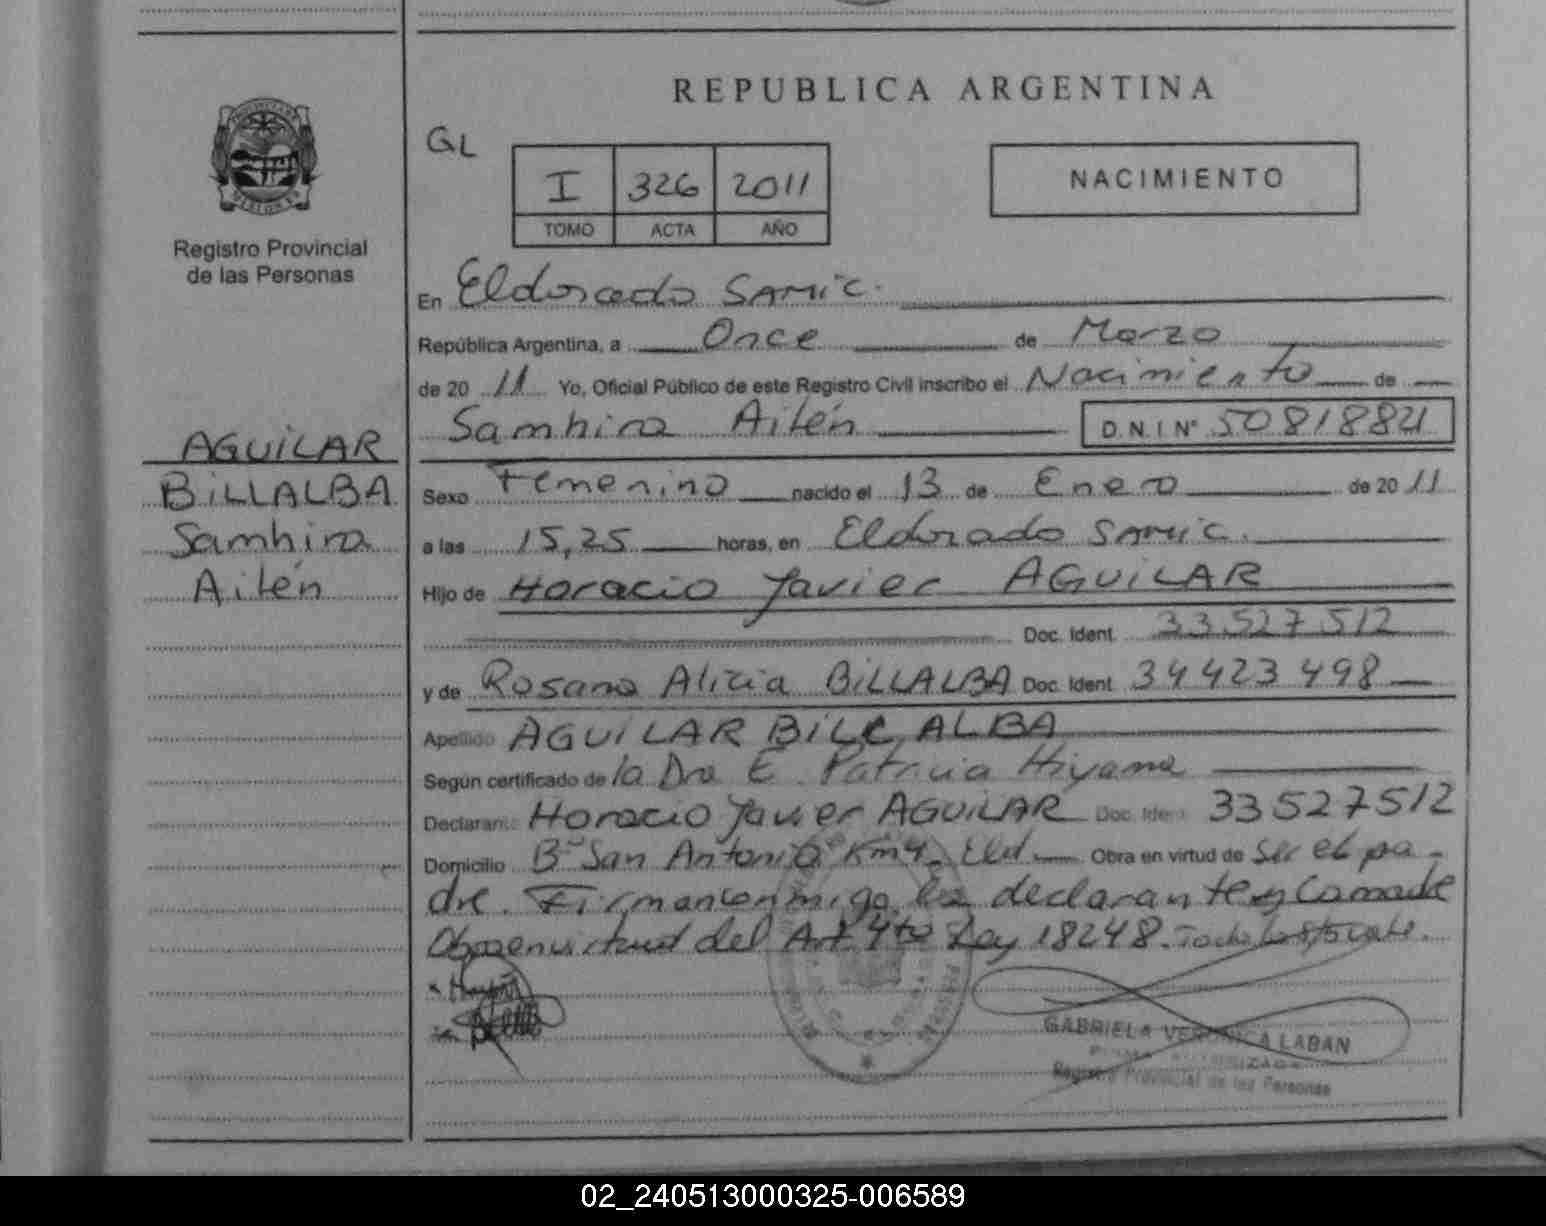 REPUBLICA ARGENTINA
GL
I 326 2011
TOMO ACTA AÑO
NACIMIENTO
Registro Provincial
de las Personas
En Eldorado SAMIC.
República Argentina, a Once de Marzo
de 20 11 Yo, Oficial Público de este Registro Civil inscribo el Nacimiento de
Samhira Ailén D.N.I Nº 50818821
AGUILAR
BILLALBA
Samhira
Ailén
Sexo Femenino nacido el 13 de Enero de 20 11
a las 15,25 horas, en Eldorado SAMIC.
Hijo de Horacio Javier AGUILAR
Doc. Ident. 33.527.512
y de Rosana Alicia BILLALBA Doc. Ident 34 423 498
Apellido AGUILAR BILLALBA
Según certificado de la Dra E. Patricia Hiyama
Declarante Horacio Javier AGUILAR Doc. Ident 33527512
Domicilio Bº San Antonio Km4. Eld. Obra en virtud de Ser el pa-
dre. Firman conmigo la declarante y la madre
Obra en virtud del Art 4to Ley 18248.
GABRIELA VERONICA LABAN
FIRMA AUTORIZADA
Registro Provincial de las Personas
02_240513000325-006589